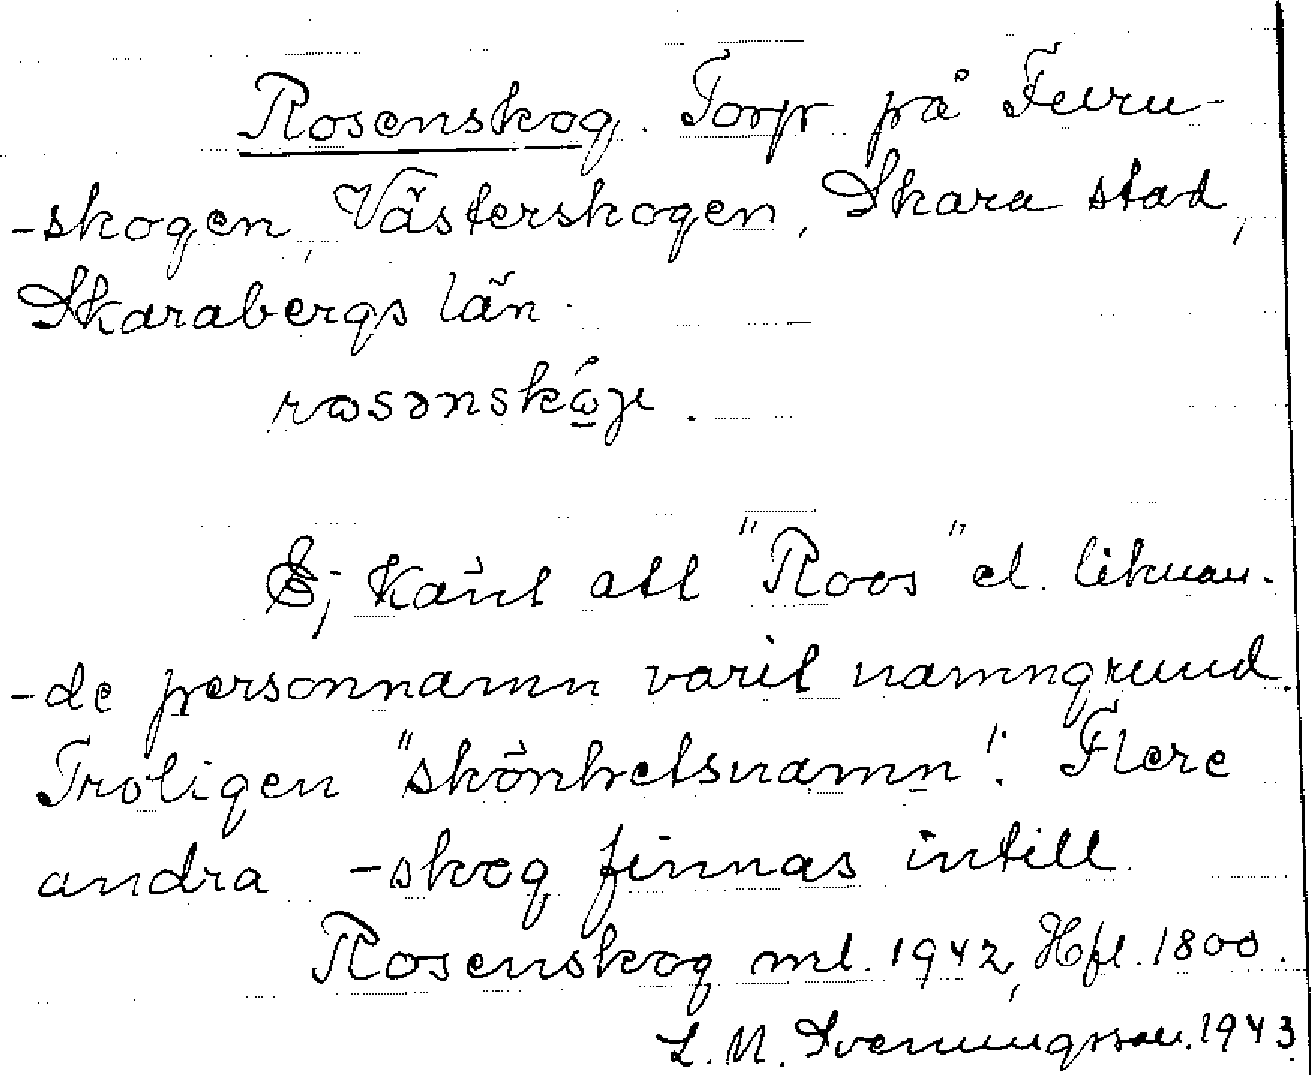 Rosenskog. Torp på Feuru-
-skogen, Västerskogen, Skara stad,
Skarabergs län.
rɷsənskɷ́ɡe.
Ej känt att "Roos" el. liknan-
-de personnamn varit namngrund.
Troligen "skönhetsnamn". Flere
andra -skog finnas intill.
Rosenskog ml. 1942, Hfl. 1800.
L. M. Svenungsson. 1943